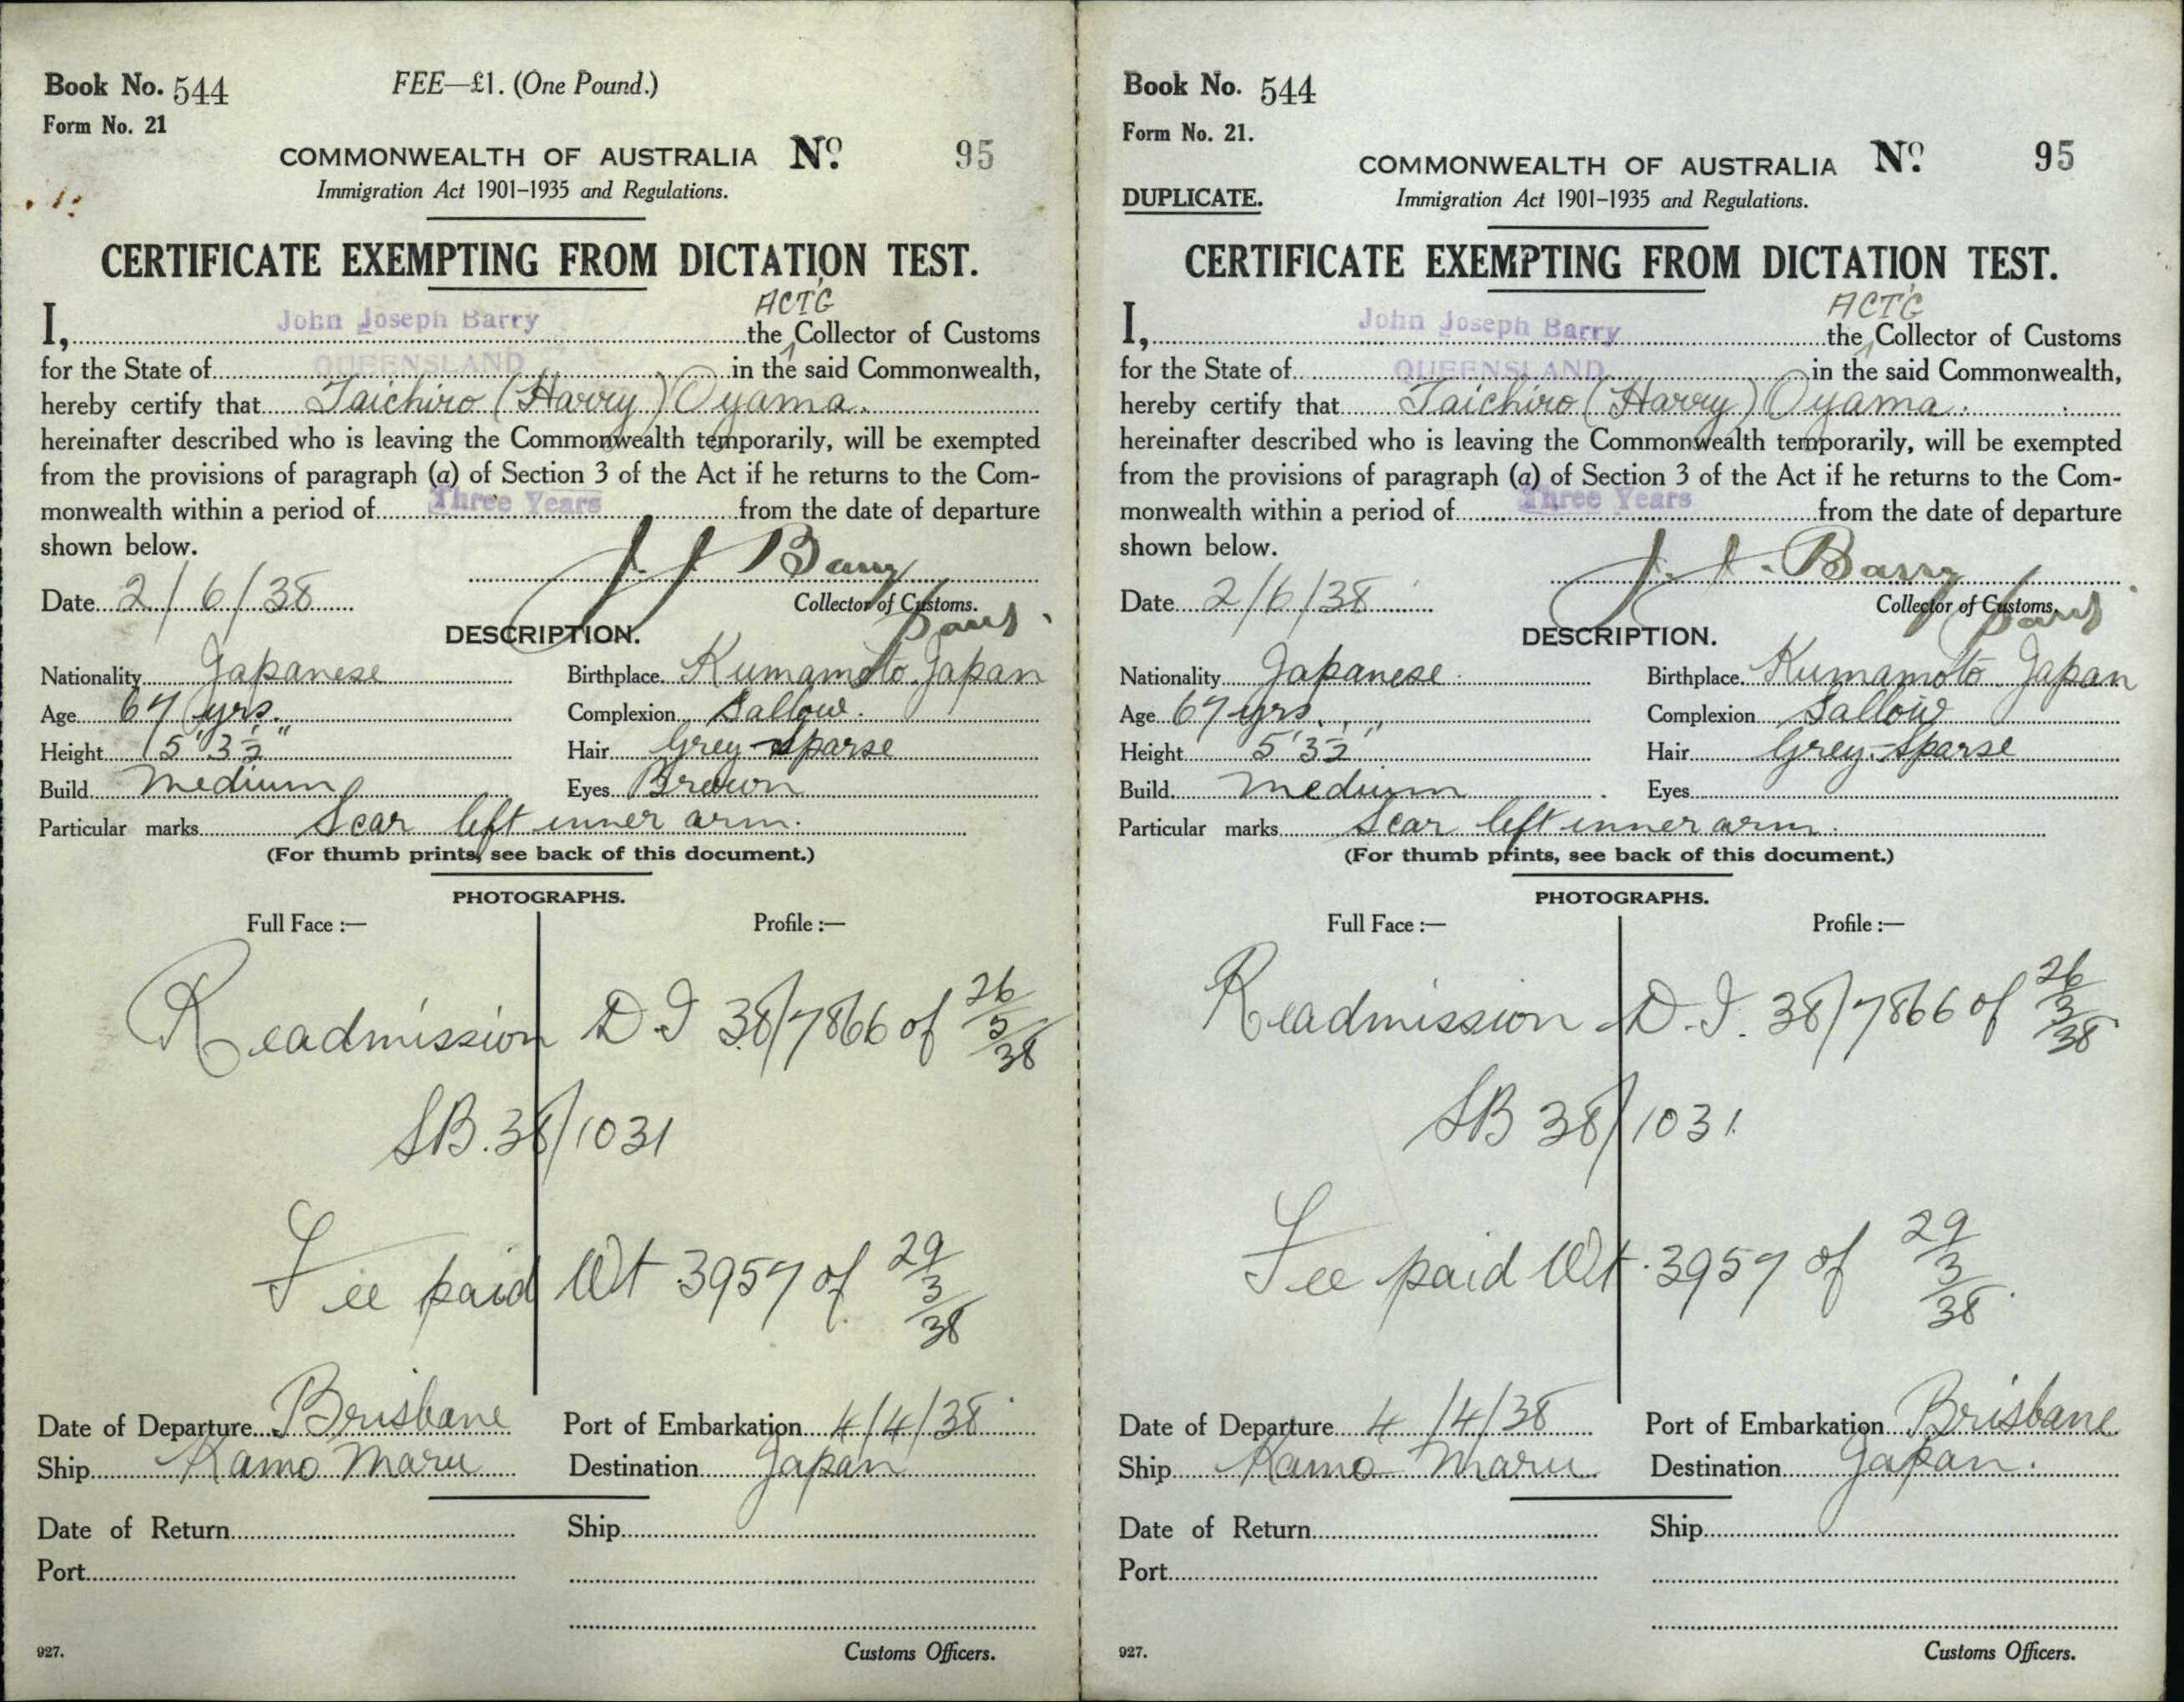 Book No. 544 FEE—£1. (One Pound.)
Form No. 21
COMMONWEALTH OF AUSTRALIA No. 95
Immigration Act 1901–1935 and Regulations.
CERTIFICATE EXEMPTING FROM DICTATION TEST.
ACT'G
I, John Joseph Barry the Collector of Customs
for the State of QUEENSLAND in the said Commonwealth,
hereby certify that Taichiro (Harry) Oyama.
hereinafter described who is leaving the Commonwealth temporarily, will be exempted
from the provisions of paragraph (a) of Section 3 of the Act if he returns to the Com-
monwealth within a period of Three Years from the date of departure
shown below.
J. J. Barry
Date 2/6/38 Collector of Customs.
DESCRIPTION.
Nationality Japanese Birthplace Kumamoto Japan
Age 67 yrs. Complexion Sallow.
Height 5' 3½" Hair Grey-Sparse
Build Medium Eyes Brown
Particular marks Scar left inner arm.
(For thumb prints, see back of this document.)
PHOTOGRAPHS.
Full Face :— Profile :—
Readmission D I 38/7866 of 26/3/38
SB. 38/1031
Fee paid Wt 3957 of 29/3/38
Date of Departure Brisbane Port of Embarkation 4/4/38
Ship Kamo Maru Destination Japan
Date of Return Ship
Port
927. Customs Officers.
Book No. 544
Form No. 21.
COMMONWEALTH OF AUSTRALIA No. 95
DUPLICATE. Immigration Act 1901–1935 and Regulations.
CERTIFICATE EXEMPTING FROM DICTATION TEST.
ACT'G
I, John Joseph Barry the Collector of Customs
for the State of QUEENSLAND in the said Commonwealth,
hereby certify that Taichiro (Harry) Oyama.
hereinafter described who is leaving the Commonwealth temporarily, will be exempted
from the provisions of paragraph (a) of Section 3 of the Act if he returns to the Com-
monwealth within a period of Three Years from the date of departure
shown below.
J. J. Barry
Date 2/6/38 Collector of Customs.
DESCRIPTION.
Nationality Japanese Birthplace Kumamoto Japan
Age 67 yrs. Complexion Sallow
Height 5' 3½" Hair Grey-Sparse
Build Medium Eyes
Particular marks Scar left inner arm.
(For thumb prints, see back of this document.)
PHOTOGRAPHS.
Full Face :— Profile :—
Readmission D.I. 38/7866 of 26/3/38
SB 38/1031
Fee paid Wt. 3957 of 29/3/38
Date of Departure 4/4/38 Port of Embarkation Brisbane
Ship Kamo Maru Destination Japan.
Date of Return Ship
Port
927. Customs Officers.